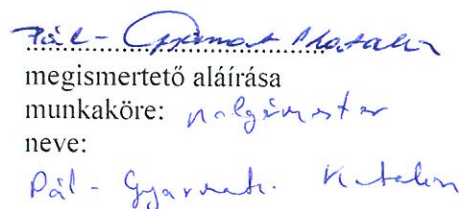 Pál - Gyarmat Katalin
megismertető aláírása
munkaköre: polgármester
neve:
Pál - Gyarmati Katalin